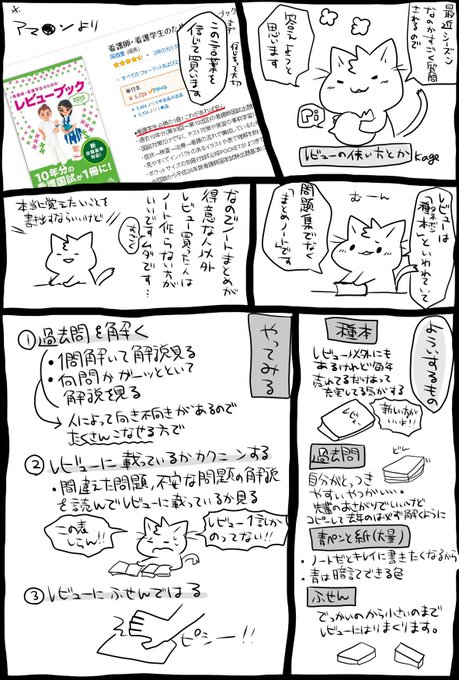 最近シーズン
なのかすごく質問
されるので
答えようと
思います
Pi
レビューの使い方とか
kage
※
アマ●ンより
看護師・看護学生のため
ブック
レビューブック
2015
10年分の
看護国試が1冊に!
この言葉を
信じて買います
レビューは
「種本」
といわれていて
むーん
問題集でなく
「まとめノート」です
なのでノートまとめが
得意な人以外
レビュー買った人は
ノート作らない方が
いいですムダです…
本当に覚えたいことを
書き出すならいいけど
よういするもの
種本
レビュー以外にも
あるけれど毎年
売れてるだけあって
充実してる気がする
新しい方が
いいよ!!
過去問
自分がとっつき
やすいやつがいい。
先輩のおさがりでいいけど
コピーして去年のは必ず解くように
青ペンと紙(大量)
・ノートだとキレイに書きたくなるから
・青は暗記できる色
ふせん
でっかいのから小さいのまで
レビューにはりまくります。
やってみる
①過去問を解く
・1問解いて解説見る
・何問かガーッとといて
解説を見る
人によって向き不向きがあるので
たくさんこなせる方で
②レビューに載っているかカクニンする
・間違えた問題、不安な問題の解説
を読んでレビューに載っているか見る
この表
しらん!!
レビュー1言しか
のってない!!
③レビューにふせんではる
ピシー!!